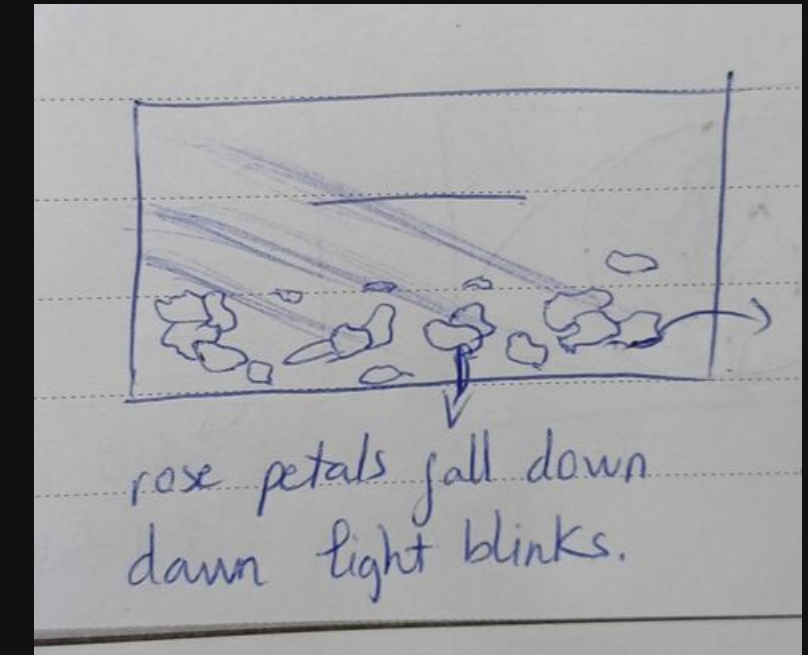 rose petals fall down
dawn light blinks.